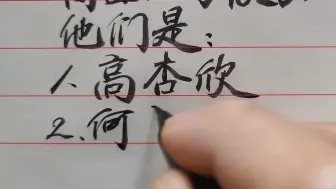 他们是：
1.高杏欣
2.何